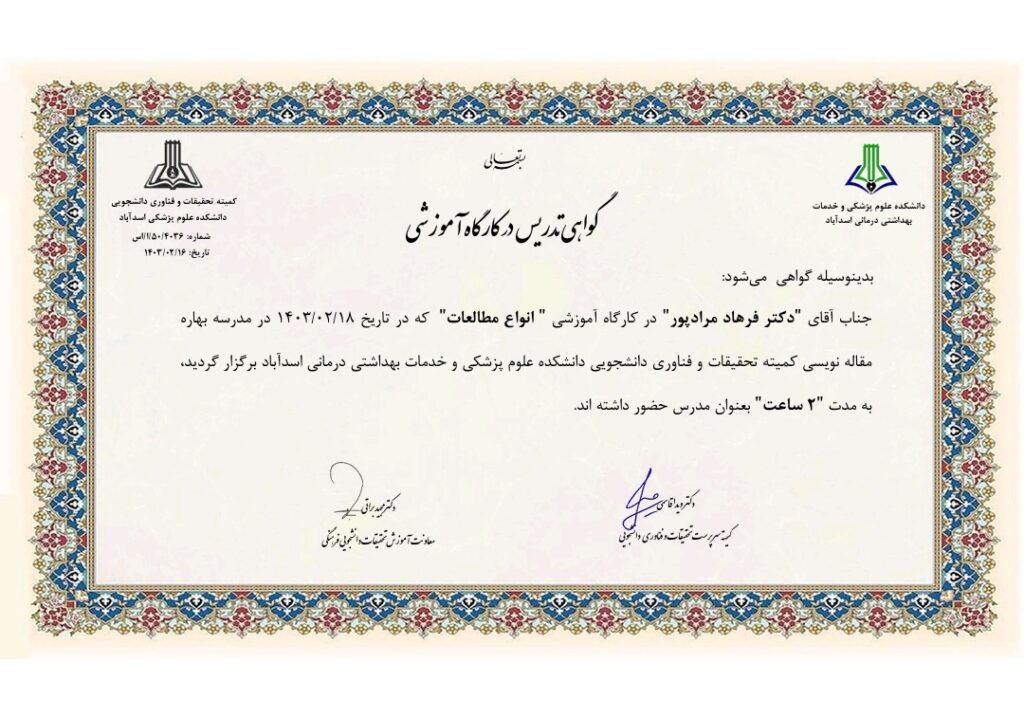 بسمه تعالی
دانشکده علوم پزشکی و خدمات
بهداشتی درمانی اسدآباد
کمیته تحقیقات و فناوری دانشجویی
دانشکده علوم پزشکی اسدآباد
شماره: ۱/۵۰/۴۰۳۶/اس
تاریخ: ۱۴۰۳/۰۲/۱۶
گواهی تدریس در کارگاه آموزشی
بدینوسیله گواهی می‌شود:
جناب آقای "دکتر فرهاد مرادپور" در کارگاه آموزشی " انواع مطالعات" که در تاریخ ۱۴۰۳/۰۲/۱۸ در مدرسه بهاره
مقاله نویسی کمیته تحقیقات و فناوری دانشجویی دانشکده علوم پزشکی و خدمات بهداشتی درمانی اسدآباد برگزار گردید،
به مدت "۲ ساعت" بعنوان مدرس حضور داشته اند.
دکتر ویدا قاسمی
کمیته سرپرست تحقیقات و فناوری دانشجویی
دکتر مجید براتی
معاونت آموزش تحقیقات دانشجویی فرهنگی